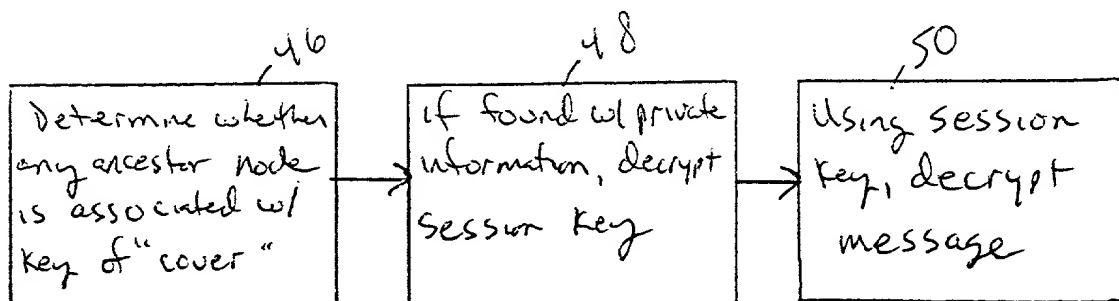 46
Determine whether
any ancestor node
is associated w/
key of "cover"
48
if found w/private
information, decrypt
session key
50
Using session
key, decrypt
message